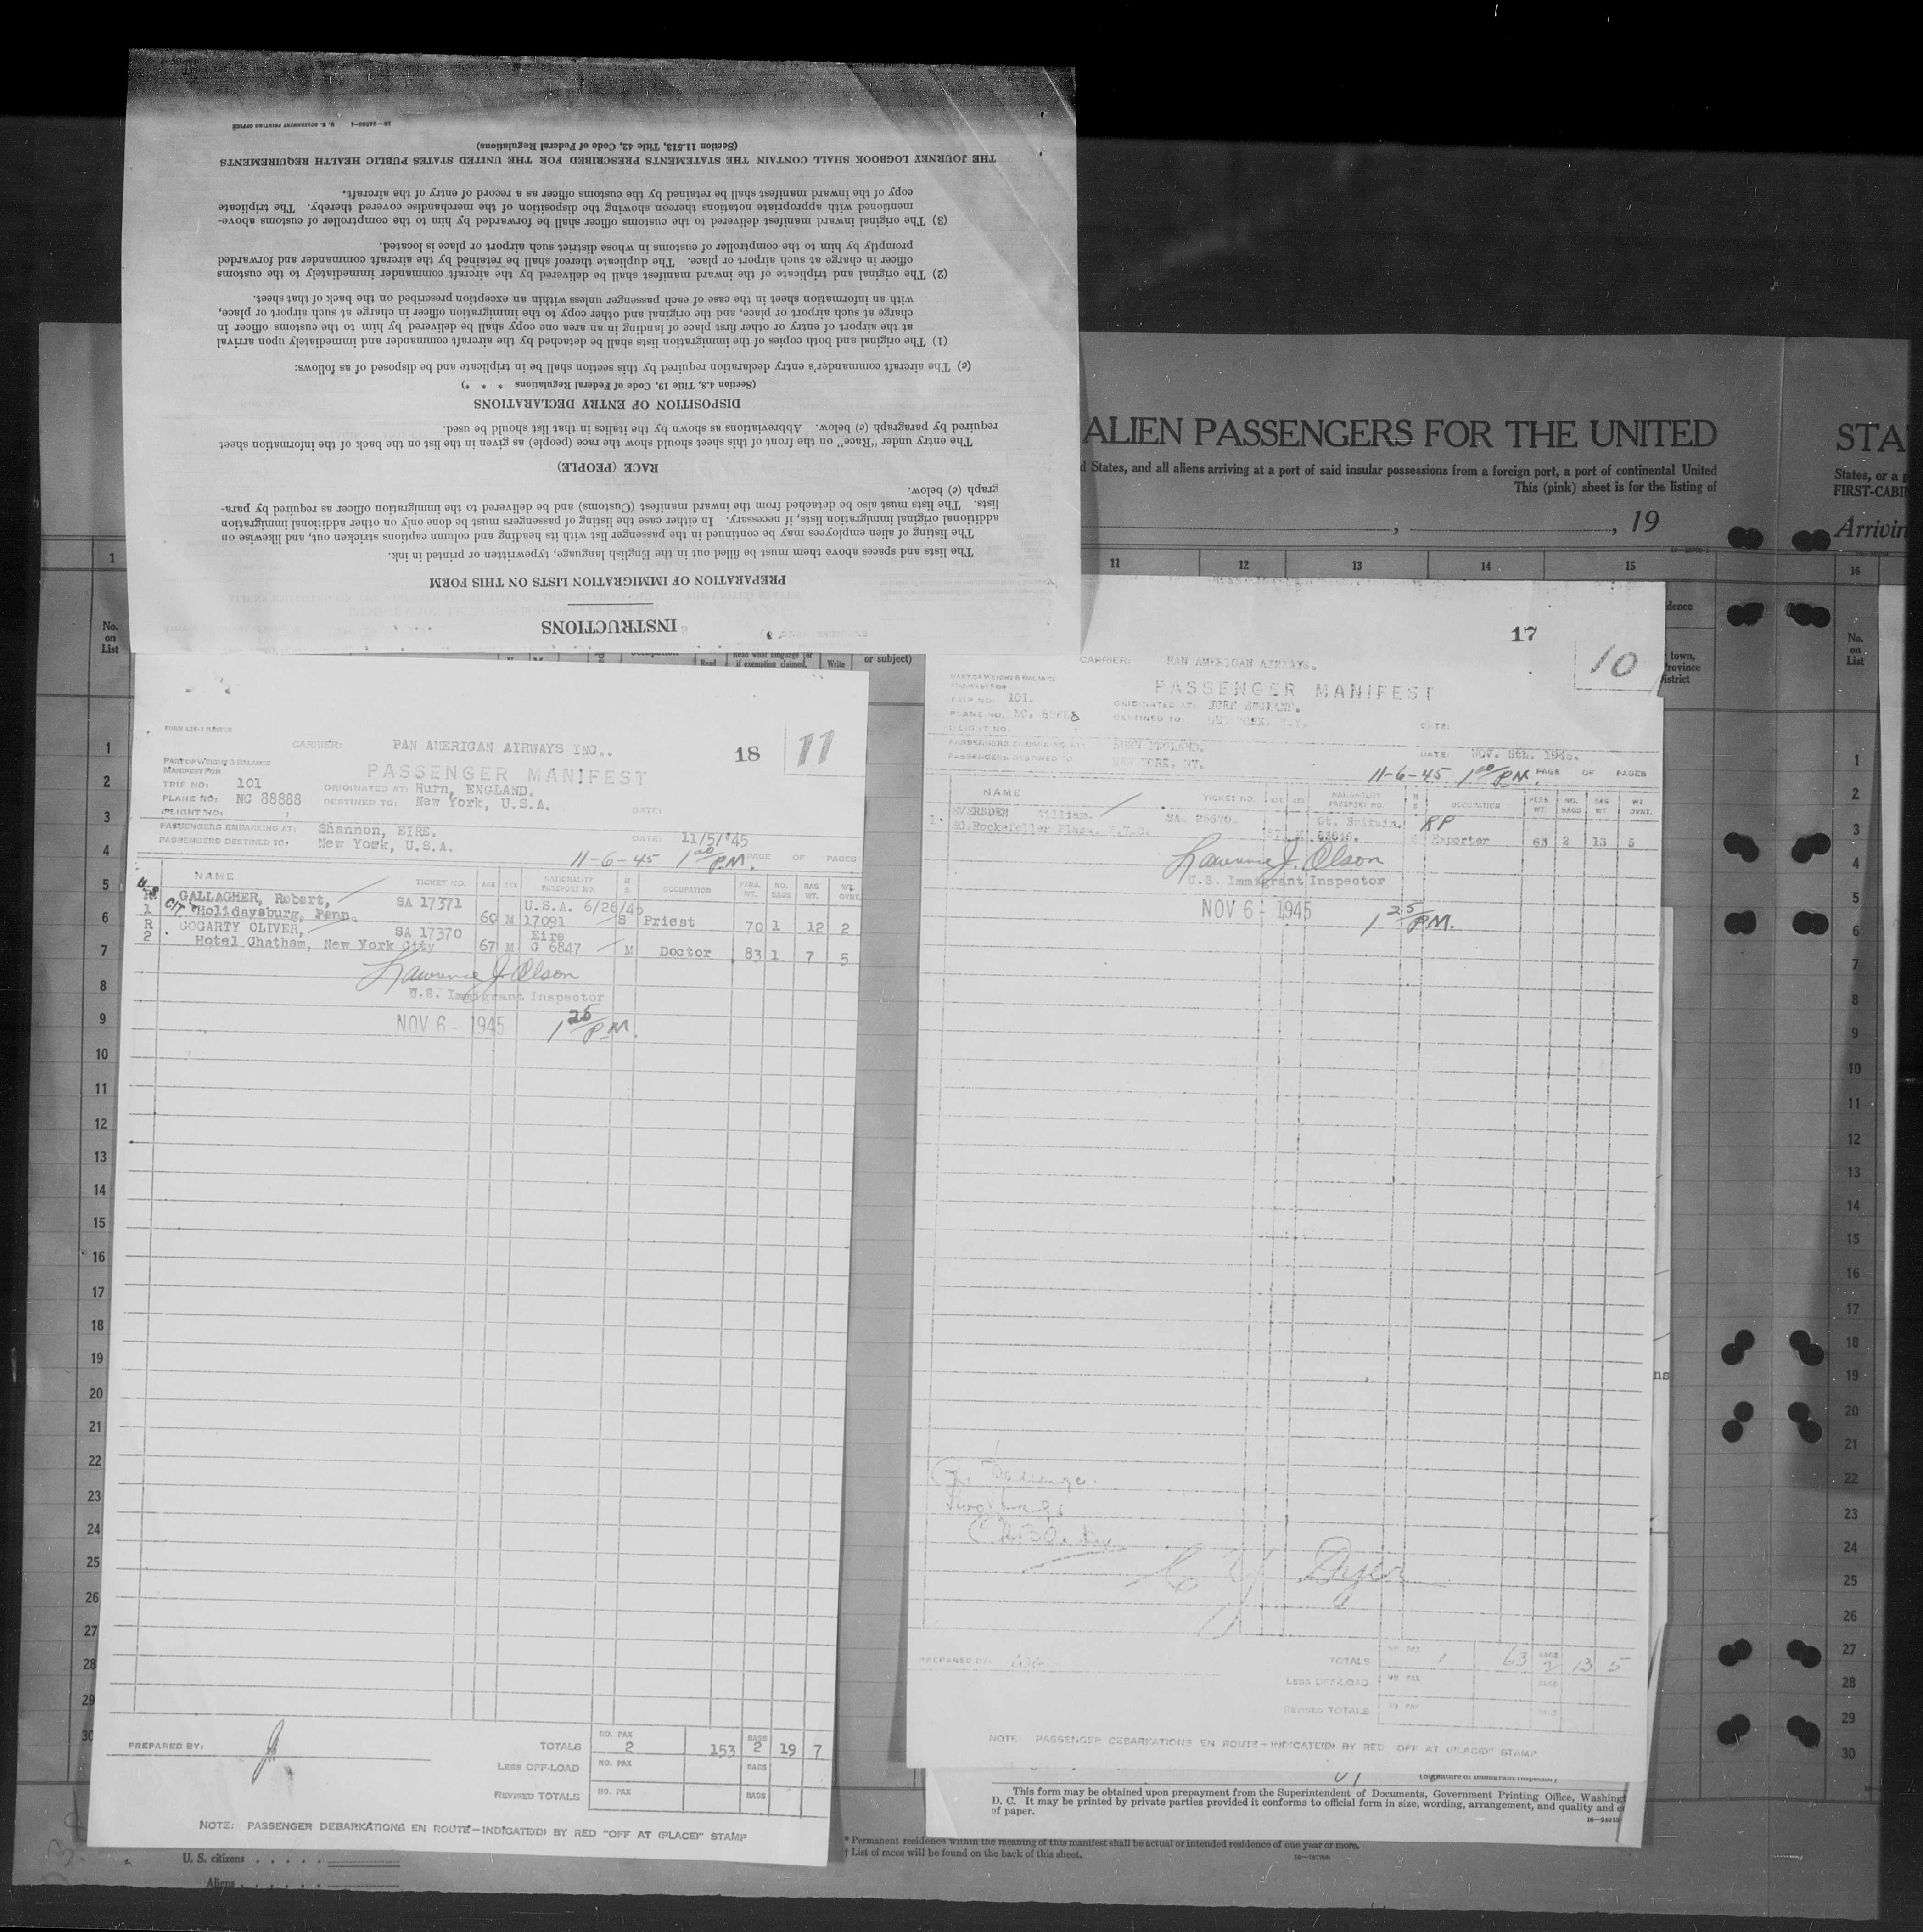 16—24508-4 U. S. GOVERNMENT PRINTING OFFICE
INSTRUCTIONS
PREPARATION OF IMMIGRATION LISTS ON THIS FORM
The lists and spaces above them must be filled out in the English language, typewritten or printed in ink.
The listing of alien employees may be continued in the passenger list with its heading and column captions stricken out, and likewise on
additional original immigration lists, if necessary. In either case the listing of passengers must be done only on other additional immigration
lists. The lists must also be detached from the inward manifest (Customs) and be delivered to the immigration officer as required by para-
graph (c) below.
RACE (PEOPLE)
The entry under "Race" on the front of this sheet should show the race (people) as given in the list on the back of the information sheet
required by paragraph (c) below. Abbreviations as shown by the italics in that list should be used.
DISPOSITION OF ENTRY DECLARATIONS
(Section 4.8, Title 19, Code of Federal Regulations * * *)
(c) The aircraft commander's entry declaration required by this section shall be in triplicate and be disposed of as follows:
(1) The original and both copies of the immigration lists shall be detached by the aircraft commander and immediately upon arrival
at the airport of entry or other first place of landing in an area one copy shall be delivered by him to the customs officer in
charge at such airport or place, and the original and other copy to the immigration officer in charge at such airport or place,
with an information sheet in the case of each passenger unless within an exception prescribed on the back of that sheet.
(2) The original and triplicate of the inward manifest shall be delivered by the aircraft commander immediately to the customs
officer in charge at such airport or place. The duplicate thereof shall be retained by the aircraft commander and forwarded
promptly by him to the comptroller of customs in whose district such airport or place is located.
(3) The original inward manifest delivered to the customs officer shall be forwarded by him to the comptroller of customs above-
mentioned with appropriate notations thereon showing the disposition of the merchandise covered thereby. The triplicate
copy of the inward manifest shall be retained by the customs officer as a record of entry of the aircraft.
THE JOURNEY LOGBOOK SHALL CONTAIN THE STATEMENTS PRESCRIBED FOR THE UNITED STATES PUBLIC HEALTH REQUIREMENTS
(Section 11.513, Title 42, Code of Federal Regulations)
ALIEN PASSENGERS FOR THE UNITED
d States, and all aliens arriving at a port of said insular possessions from a foreign port, a port of continental United
This (pink) sheet is for the listing of
, , 19
STA
States, or a p
FIRST-CABI
Arrivin
1 11 12 13 14 15 16
No.
on
List
or subject)
Read Write
town,
Province
District
No.
on
List
CARRIER: PAN AMERICAN AIRWAYS INC.. 18 11
PART OF WEIGHT & BALANCE
MANIFEST FOR
PASSENGER MANIFEST
TRIP NO: 101 ORIGINATED AT: Hurn, ENGLAND.
PLANE NO: NC 88888 DESTINED TO: New York, U.S.A. DATE:
FLIGHT NO:
PASSENGERS EMBARKING AT: Shannon, EIRE. DATE: 11/5/'45
PASSENGERS DESTINED TO: New York, U.S.A.
11-6-45 1 00/PM. PAGE OF PAGES
NAME TICKET NO. AGE SEX NATIONALITY PASSPORT NO. M S OCCUPATION PERS. WT. NO. BAGS BAG WT. WT. OVNT.
U.S. CIT 1 GALLAGHER, Robert, SA 17371 U.S.A. 6/26/45
Holidaysburg, Penn. 60 M 17091 S Priest 70 1 12 2
R 2 GOGARTY OLIVER, SA 17370 Eire
Hotel Chatham, New York City 67 M C 6847 M Doctor 83 1 7 5
Lawrence J. Olson
U.S. Immigrant Inspector
NOV 6 - 1945 1 25/PM.
PREPARED BY:
TOTALS NO. PAX 2 153 BAGS 2 19 7
LESS OFF-LOAD NO. PAX BAGS
REVISED TOTALS NO. PAX BAGS
NOTE: PASSENGER DEBARKATIONS EN ROUTE—INDICATE(D) BY RED "OFF AT (PLACE)" STAMP
17 10
CARRIER: PAN AMERICAN AIRWAYS.
PART OF WEIGHT & BALANCE
MANIFEST FOR
PASSENGER MANIFEST
TRIP NO: 101. ORIGINATED AT: HURN ENGLAND.
PLANE NO. NC. 88888 DESTINED TO: NEW YORK. N.Y. DATE:
FLIGHT NO:
PASSENGERS EMBARKING AT: HURN ENGLAND. DATE: NOV. 5th. 1945.
PASSENGERS DESTINED TO: NEW YORK. NY.
11-6-45 1 00/PM. PAGE OF PAGES
NAME TICKET NO. AGE SEX NATIONALITY PASSPORT NO. M S OCCUPATION PERS. WT. NO. BAGS BAG WT. WT. OVNT.
1. William. SA. 26670. Gt. Britain. RP
30.Rockefeller Plaza. N.Y.C. M Exporter 63 2 13 5
Lawrence J. Olson
U.S. Immigrant Inspector
NOV 6 - 1945 1 25/PM.
Dyer
PREPARED BY:
TOTALS NO. PAX 1 63 BAGS 2 13 5
LESS OFF-LOAD NO. PAX BAGS
REVISED TOTALS NO. PAX BAGS
NOTE: PASSENGER DEBARKATIONS EN ROUTE—INDICATE(D) BY RED "OFF AT (PLACE)" STAMP
(Signature of Immigrant Inspector)
This form may be obtained upon prepayment from the Superintendent of Documents, Government Printing Office, Washingt
D. C. It may be printed by private parties provided it conforms to official form in size, wording, arrangement, and quality and c
of paper.
* Permanent residence within the meaning of this manifest shall be actual or intended residence of one year or more.
† List of races will be found on the back of this sheet.
U. S. citizens
Aliens
1
2
3
4
5
6
7
8
9
10
11
12
13
14
15
16
17
18
19
20
21
22
23
24
25
26
27
28
29
30
1
2
3
4
5
6
7
8
9
10
11
12
13
14
15
16
17
18
19
20
21
22
23
24
25
26
27
28
29
30